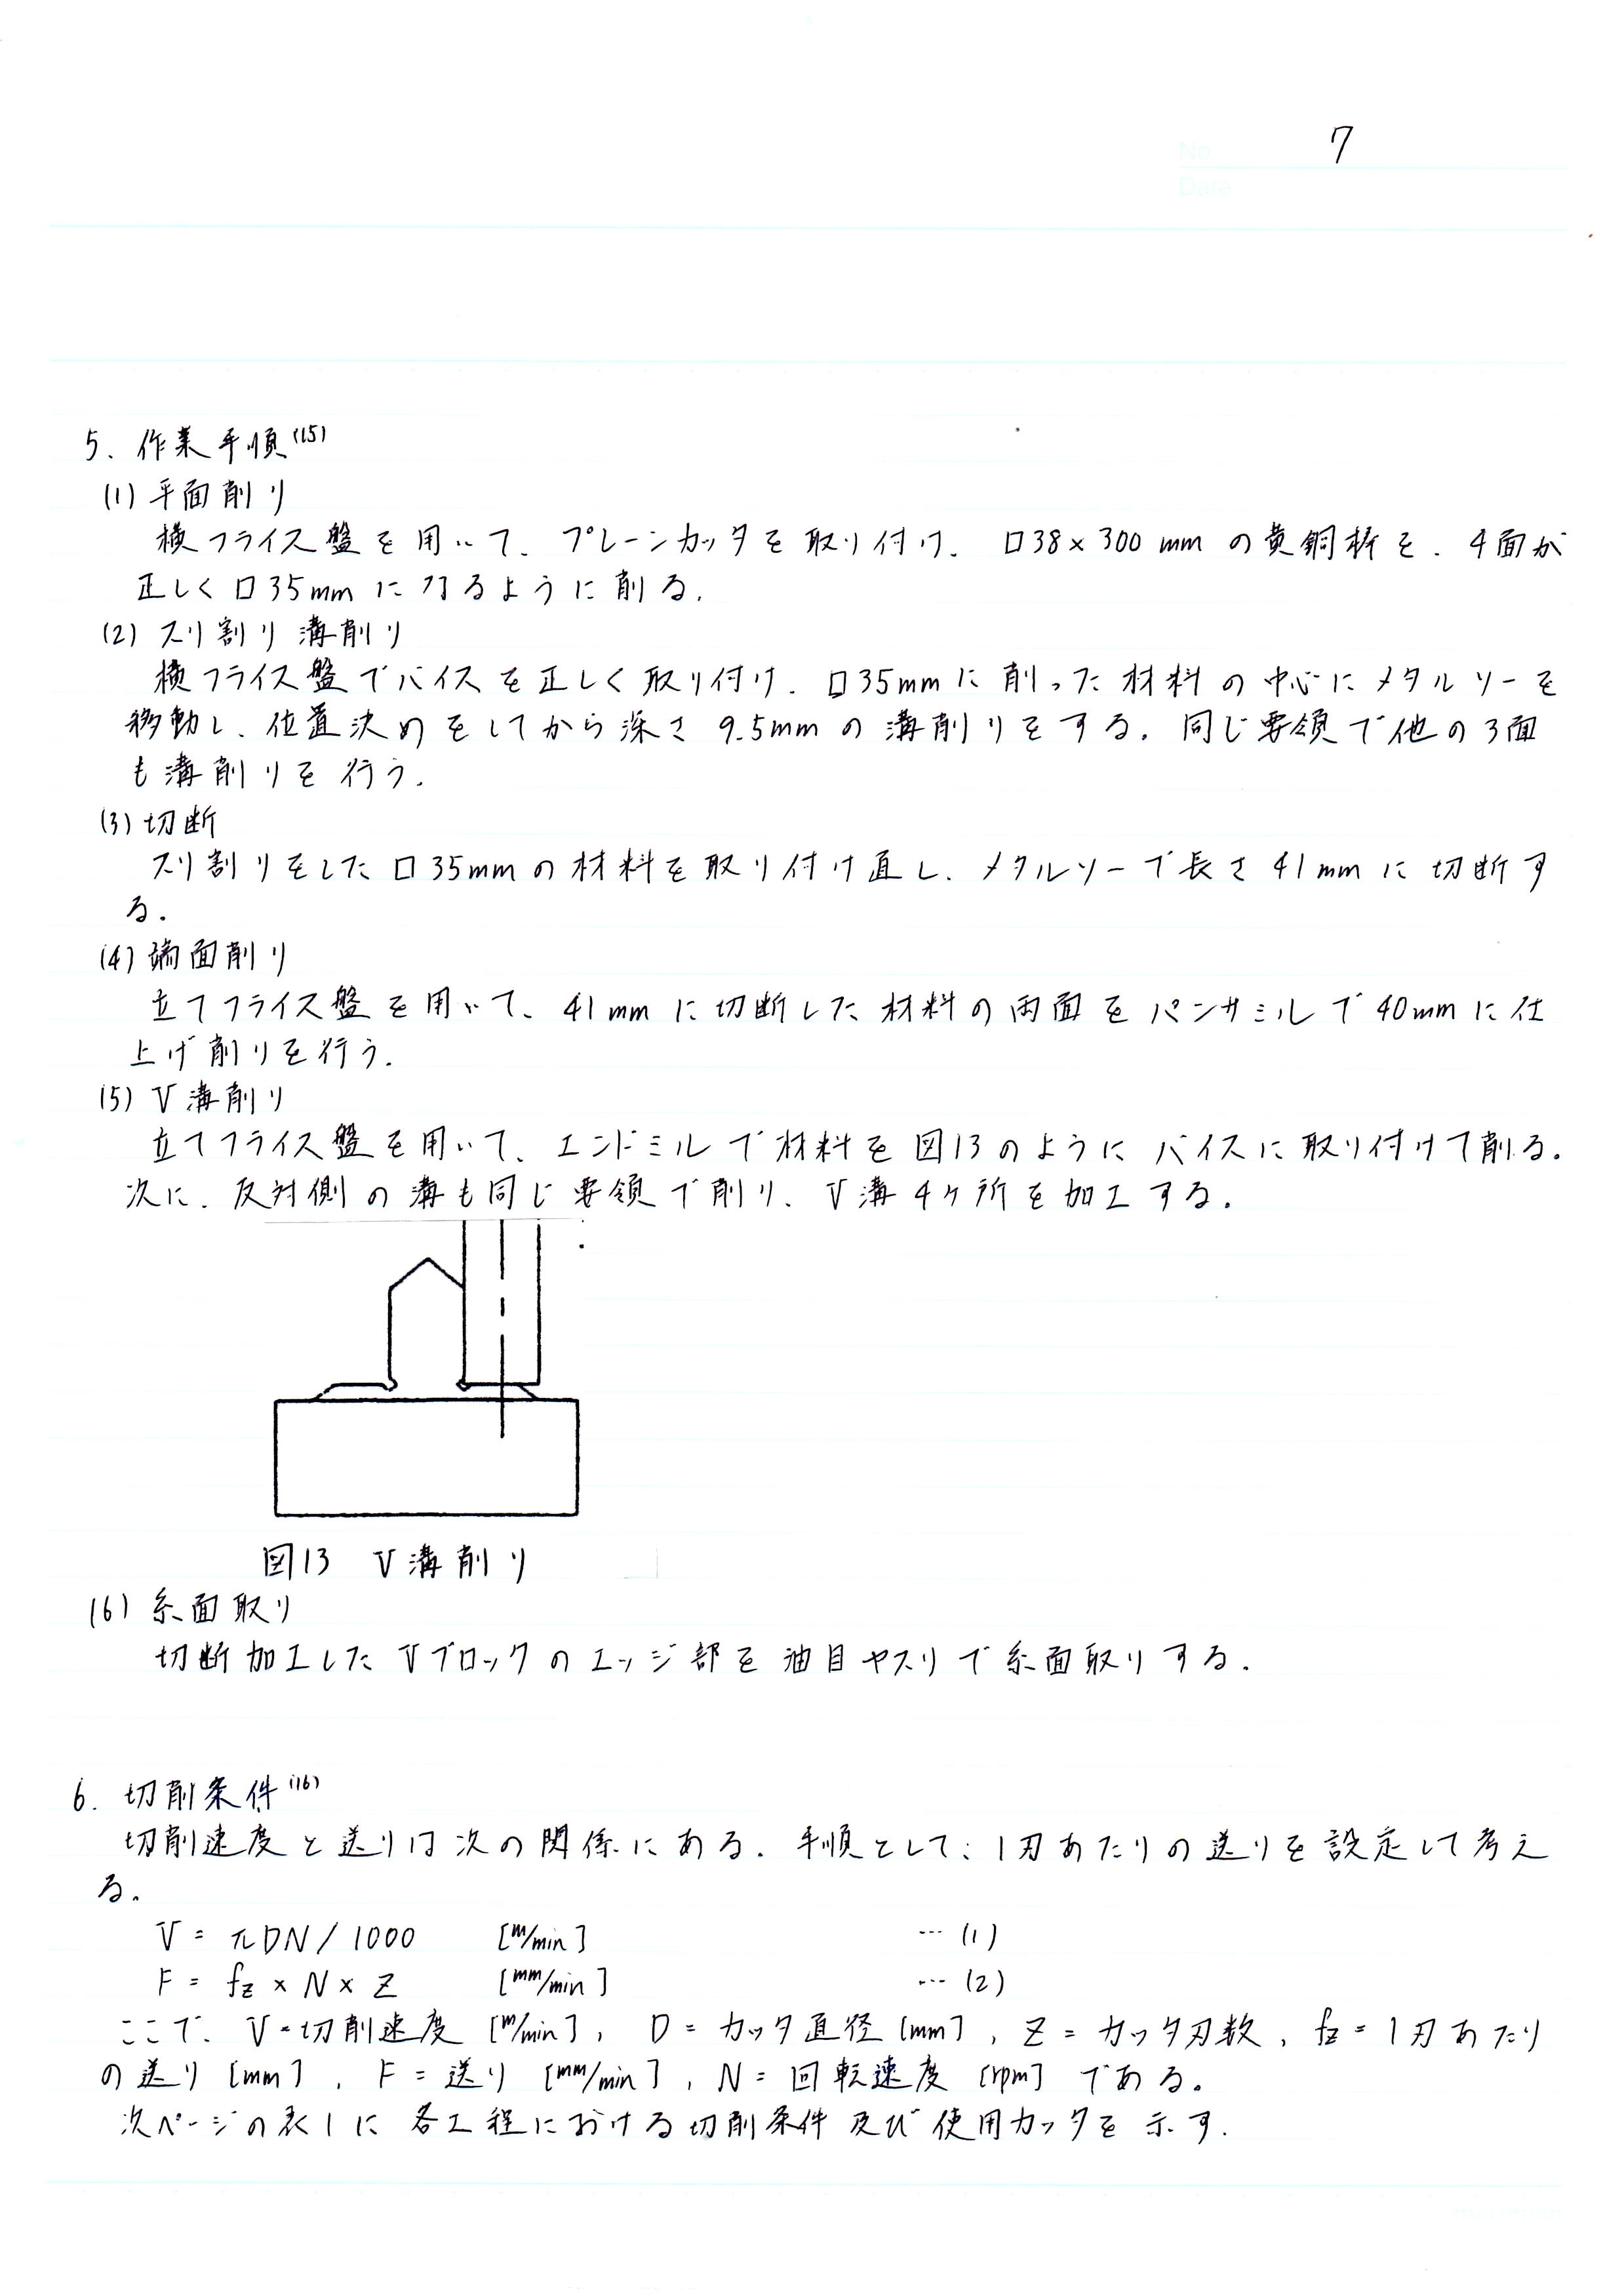 No. 7
Date
5. 作業手順(15)
(1) 平面削り
横フライス盤を用いて、プレーンカッタを取り付け、□38×300mmの黄銅棒を、4面が
正しく□35mmになるように削る。
(2) スリ割り溝削り
横フライス盤でバイスを正しく取り付け、□35mmに削った材料の中心にメタルソーを
移動し、位置決めをしてから深さ9.5mmの溝削りをする。同じ要領で他の3面
も溝削りを行う。
(3) 切断
スリ割りをした□35mmの材料を取り付け直し、メタルソーで長さ41mmに切断す
る。
(4) 端面削り
立てフライス盤を用いて、41mmに切断した材料の両面をパンサミルで40mmに仕
上げ削りを行う。
(5) V溝削り
立てフライス盤を用いて、エンドミルで材料を図13のようにバイスに取り付けて削る。
次に、反対側の溝も同じ要領で削り、V溝4ヶ所を加工する。
図13 V溝削り
(6) 糸面取り
切断加工したVブロックのエッジ部を油目ヤスリで糸面取りする。
6. 切削条件(16)
切削速度と送りは次の関係にある。手順として、1刃あたりの送りを設定して考え
る。
V = πDN/1000 [m/min] … (1)
F = fz × N × Z [mm/min] … (2)
ここで、V=切削速度 [m/min], D=カッタ直径 [mm], Z=カッタ刃数, fz=1刃あたり
の送り [mm], F=送り [mm/min], N=回転速度 [rpm] である。
次ページの表1に各工程における切削条件及び使用カッタを示す。